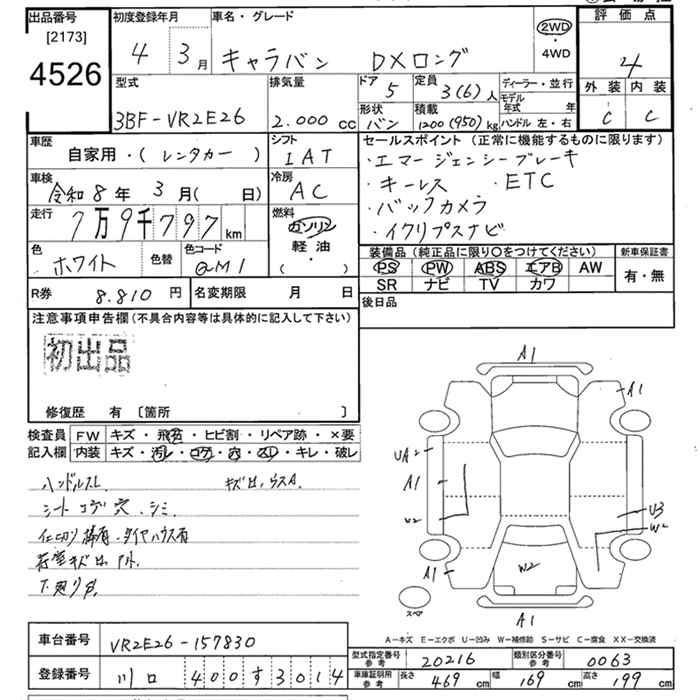 出品番号
[2173]
4526
初度登録年月
4 3月
車名・グレード
キャラバン DXロング
2WD
・
4WD
評価点
4
外装 内装
C C
型式
3BF-VR2E26
排気量
2.000 cc
ドア
5
定員
3(6)人
形状
バン
積載
1200(950)kg
ディーラー・並行
モデル年式 年
ハンドル 左・右
車歴
自家用・(レンタカー)
シフト
IAT
セールスポイント(正常に機能するものに限ります)
・エマージェンシーブレーキ
・キーレス ・ETC
・バックカメラ
・イクリプスナビ
車検
令和8年 3月( 日)
冷房
AC
走行
7万9千797km
燃料
ガソリン
軽油
( ・ )
色
ホワイト
色替
色コード
QM1
装備品(純正品に限り○をつけてください)
PS PW ABS エアB AW
SR ナビ TV カワ
新車保証書
有・無
R券 8.810円
名変期限 月 日
後日品
注意事項申告欄(不具合内容等は具体的に記入して下さい)
初出品
修復歴 有 [箇所 ]
検査員記入欄
FW キズ・飛石・ヒビ割・リペア跡・×要
内装 キズ・汚レ・コゲ・穴・スレ・キレ・破レ
ハンドルスレ
シートコゲ穴.シミ
下廻り
A1
A1
UA2
A1
U2
U3
W2
W2
A1
A1
スペア
A-キズ E-エクボ U-凹み W-補修跡 S-サビ C-腐食 XX-交換済
車台番号 VR2E26-157830
登録番号 川口 400す3014
型式指定番号 参考 20216
類別区分番号 参考 0063
車庫証明用 参考 長さ 469cm 幅 169cm 高さ 199cm